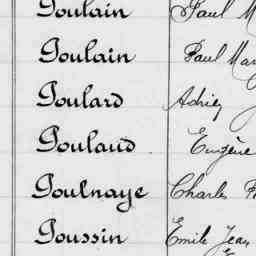 Poulain Paul M
Poulain Paul Mar
Poulard Adrien
Poulaud Eugène
Poulnaye Charles F
Poussin Emile Jean